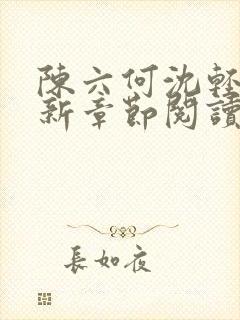 陳六何沈輕
新章節閱讀
長如夜